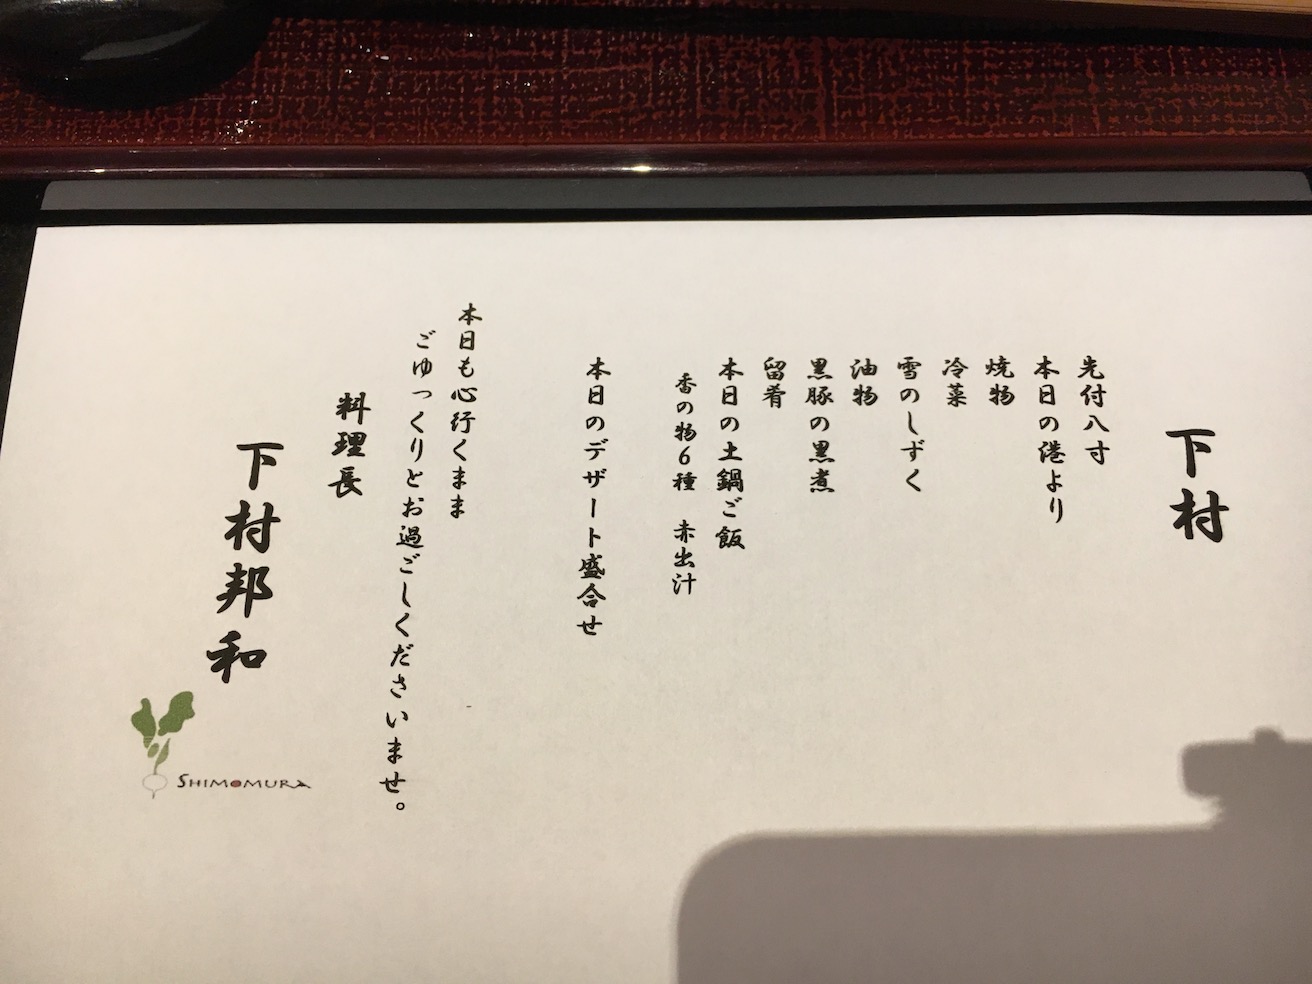 下村
先付八寸
本日の港より
焼物
冷菜
雪のしずく
油物
黒豚の黒煮
留肴
本日の土鍋ご飯
香の物6種 赤出汁
本日のデザート盛合せ
本日も心行くまま
ごゆっくりとお過ごしくださいませ。
料理長
下村邦和
SHIMOMURA